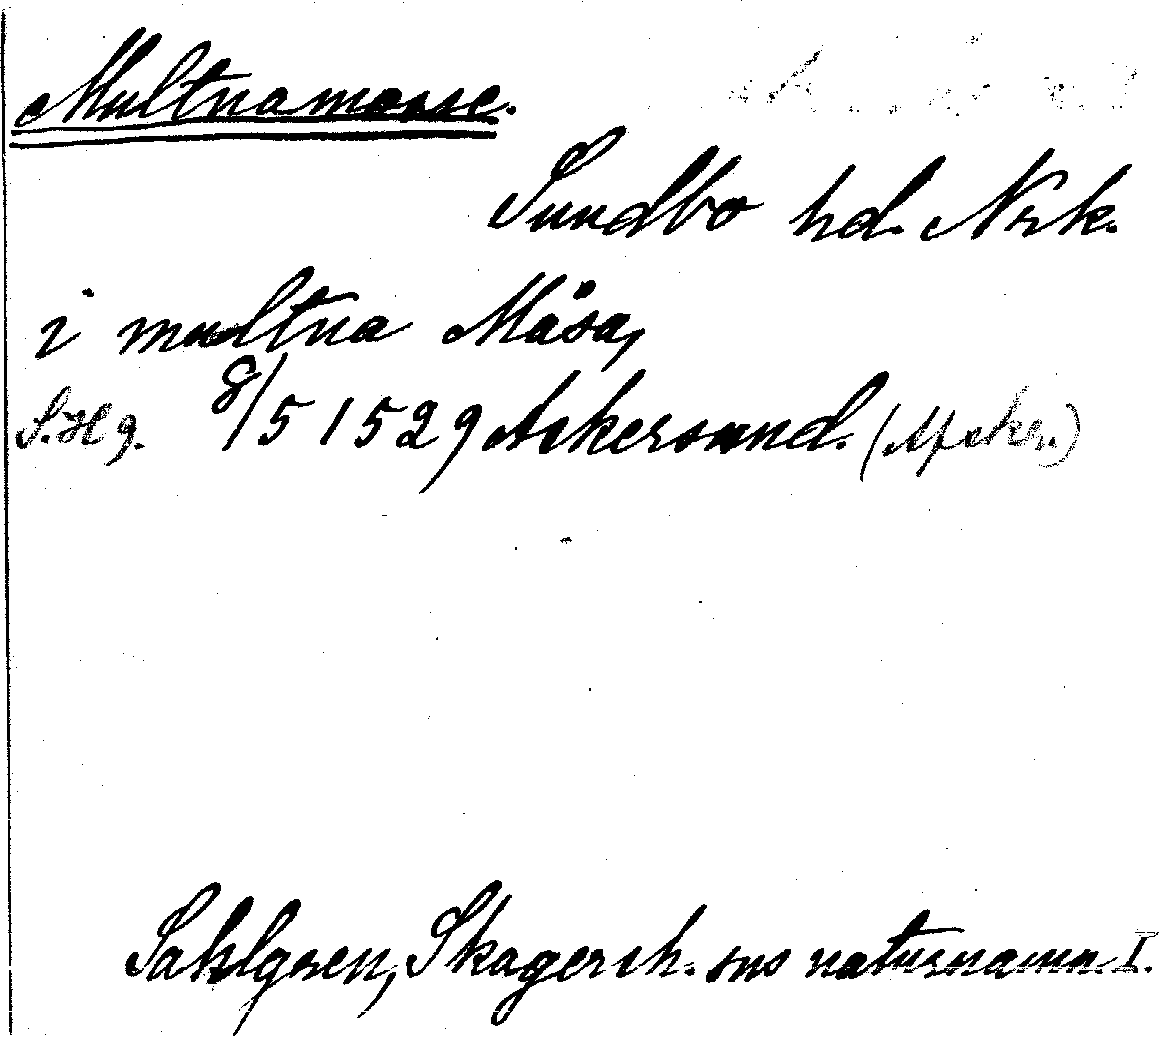 Multnamosse.
Sundbo hd. Nrk.
i multna Måsa,
S. Hg. 8/5 1529 Askersund. (Afskr.)
Sahlgren, Skagersh. sns naturnamn I.